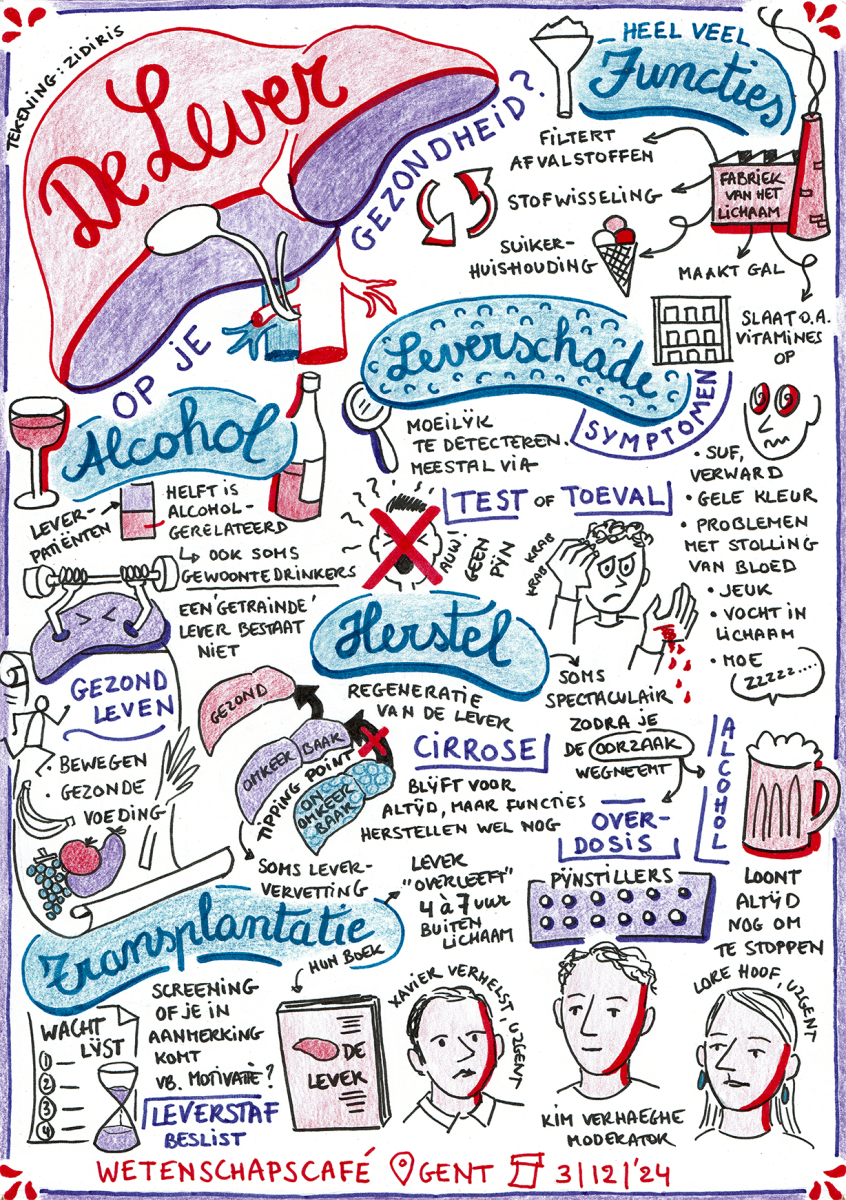 TEKENING: ZIDIRIS
De Lever
OP JE
GEZONDHEID?
HEEL VEEL
Functies
FABRIEK
VAN HET
LICHAAM
FILTERT
AFVALSTOFFEN
STOFWISSELING
SUIKER-
HUISHOUDING
MAAKT GAL
SLAAT O.A.
VITAMINES
OP
Leverschade
MOEILIJK
TE DETECTEREN.
MEESTAL VIA
TEST OF TOEVAL
AUW!
GEEN
PIJN
SYMPTOMEN
• SUF,
VERWARD
• GELE KLEUR
• PROBLEMEN
MET STOLLING
VAN BLOED
• JEUK
• VOCHT IN
LICHAAM
• MOE
ZZZZZ....
KRAB
KRAB
Alcohol
LEVER-
PATIËNTEN
HELFT IS
ALCOHOL-
GERELATEERD
↳ OOK SOMS
GEWOONTEDRINKERS
EEN 'GETRAINDE'
LEVER BESTAAT
NIET
GEZOND
LEVEN
• BEWEGEN
• GEZONDE
VOEDING
Herstel
REGENERATIE
VAN DE LEVER
GEZOND
OMKEER BAAR
TIPPING POINT
ON
OMKEER
BAAR
SOMS LEVER-
VERVETTING
CIRROSE
BLIJFT VOOR
ALTIJD, MAAR FUNCTIES
HERSTELLEN WEL NOG
SOMS
SPECTACULAIR
ZODRA JE
DE OORZAAK
WEGNEEMT
OVER-
DOSIS
PIJNSTILLERS
ALCOHOL
LOONT
ALTIJD
NOG OM
TE STOPPEN
Transplantatie
LEVER
"OVERLEEFT"
4 à 7 uur
BUITEN
LICHAAM
WACHT
LIJST
1
2
3
4
SCREENING
OF JE IN
AANMERKING
KOMT
VB. MOTIVATIE?
LEVERSTAF
BESLIST
HUN BOEK
DE
LEVER
XAVIER VERHELST, UZGENT
KIM VERHAEGHE
MODERATOR
LORE HOOF, UZGENT
WETENSCHAPSCAFÉ GENT 3/12/'24